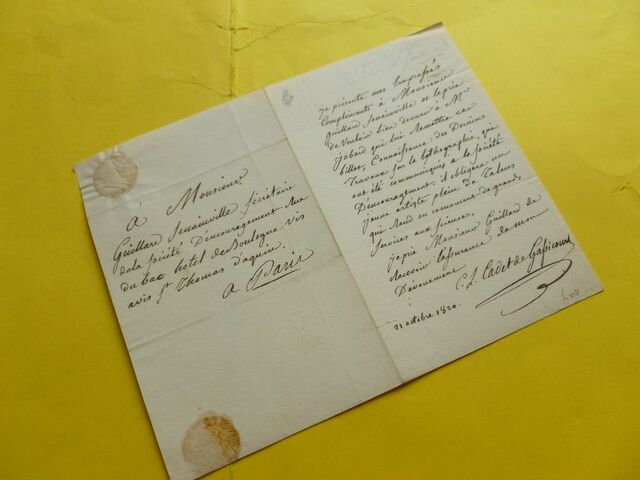 à Monsieur
Guillard Senainville Sécrétaire
de la Société Dencouragement Rue
du bac hotel de Boulogne vis
avis St Thomas d'aquin.
a Paris
je présente mes Empressés
Compliments à Monsieur
Guillard Senainville et le prie
de Vouloir bien donner à Mr
jobard qui lui Remettra ce
billet, Connaissance des Derniers
Travaux sur la lythographie, qui
ont été communiqués à la société
Dencouragement. il obligera un
jeune artiste plein de Talens
qui Rend en ce moment de grands
services aux sciences.
je prie Monsieur Guillard de
Recevoir l'assurance de mon
Dévouement
C. L. Cadet de Gassicourt
23 octobre 1820.